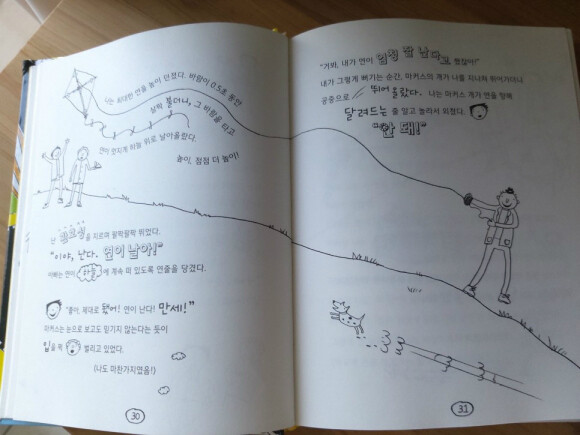 나는 최대한 연을 높이 던졌다. 바람이 0.5초 동안
살짝 불더니, 그 바람을 타고
연이 멋지게 하늘 위로 날아올랐다.
높이, 점점 더 높이!
난 환호성을 지르며 팔짝팔짝 뛰었다.
"이야, 난다. 연이 날아!"
아빠는 연이 하늘에 계속 떠 있도록 연줄을 당겼다.
"좋아, 제대로 됐어! 연이 난다! 만세!"
마커스는 눈으로 보고도 믿기지 않는다는 듯이
입을 쩍 벌리고 있었다.
(나도 마찬가지였음!)
30
"거봐, 내가 연이 엄청 잘 난다고 했잖아!"
내가 그렇게 뻐기는 순간, 마커스의 개가 나를 지나쳐 뛰어가더니
공중으로 뛰어올랐다. 나는 마커스 개가 연을 향해
달려드는 줄 알고 놀라서 외쳤다.
"안 돼!"
31